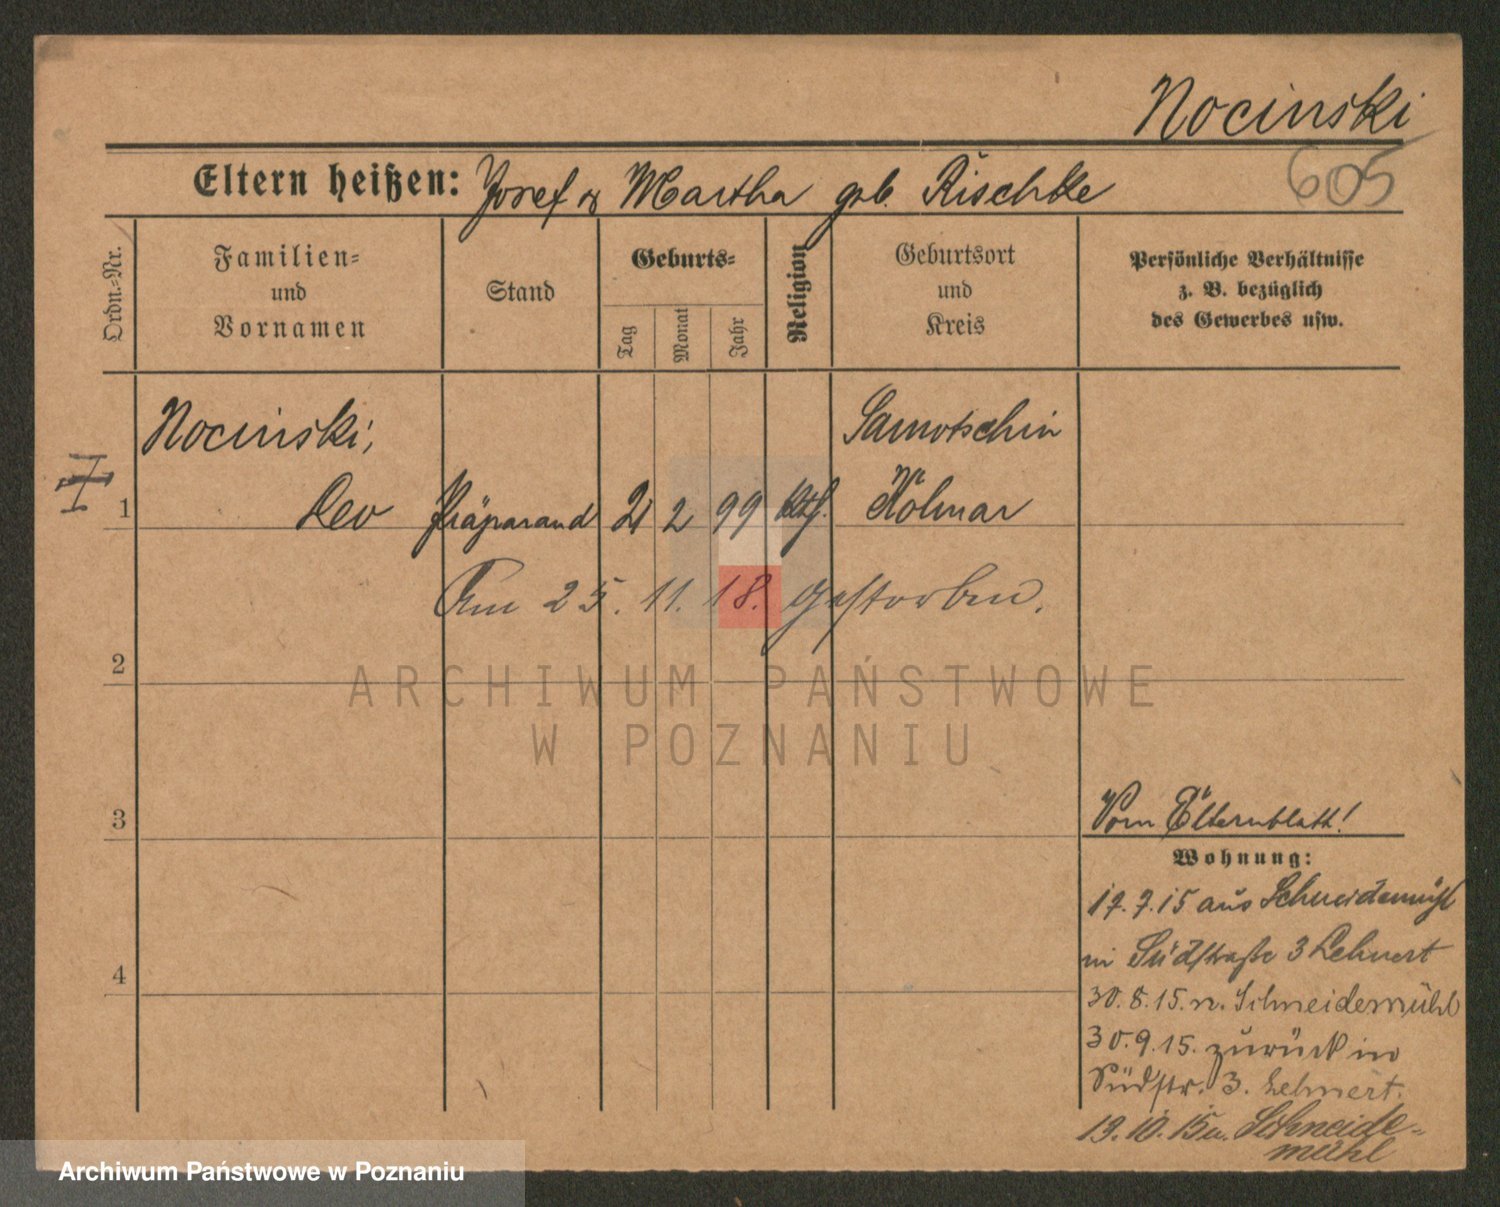 Nocinski
605
Eltern heißen: Josef & Martha geb. Rischke
Ordn.-Nr.
Familien-
und
Vornamen
Stand
Geburts-
Tag
Monat
Jahr
Religion
Geburtsort
und
Kreis
Persönliche Verhältnisse
z. B. bezüglich
des Gewerbes usw.
Nocinski,
Samotschin
1 Leo Präparand 21 2 99 kth. Kolmar
Am 25. 11. 18. gestorben.
2
ARCHIWUM PAŃSTWOWE
W POZNANIU
3
Vom Elternblatt!
Wohnung:
17.7.15 aus Schneidemühl
in Südstraße 3 Lehnert
4
30.8.15. n. Schneidemühl
30.9.15. zurück in
Südstr. 3. Lehnert.
19.10.15 n. Schneide-
mühl
Archiwum Państwowe w Poznaniu